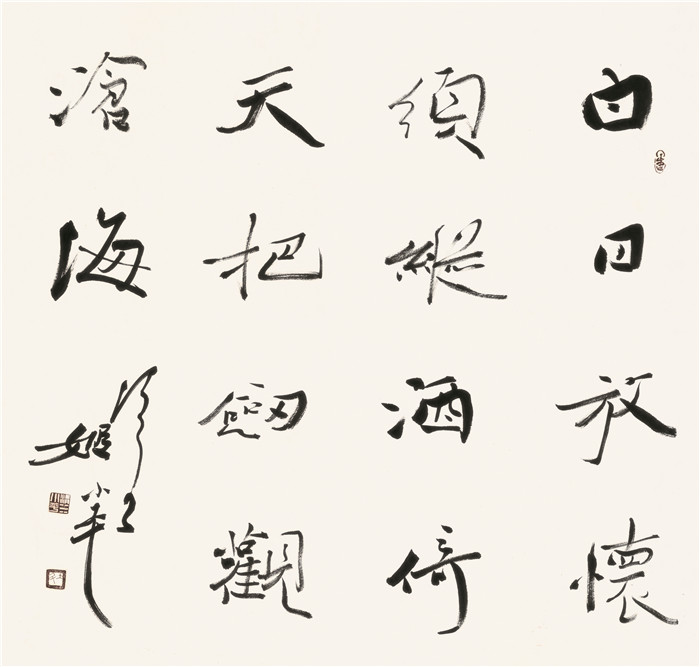 白日放懷
須縱酒倚
天把劒觀
滄海